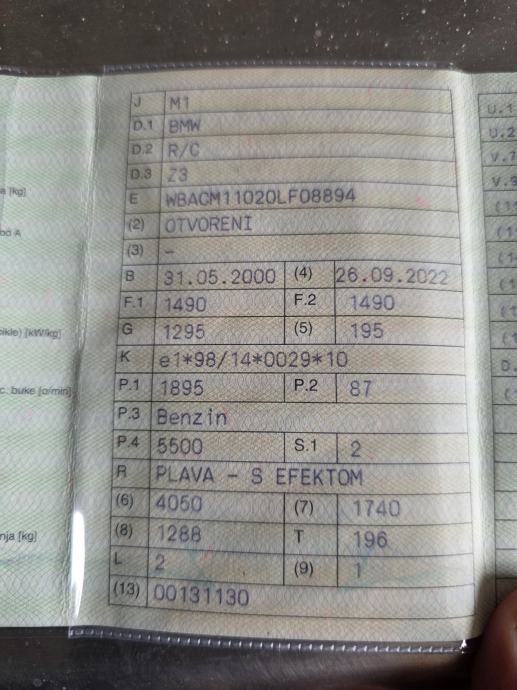 J M1
D.1 BMW
D.2 R/C
D.3 Z3
E WBACM11020LF08894
(2) OTVORENI
(3) -
B 31.05.2000 (4) 26.09.2022
F.1 1490 F.2 1490
G 1295 (5) 195
K e1*98/14*0029*10
P.1 1895 P.2 87
P.3 Benzin
P.4 5500 S.1 2
R PLAVA - S EFEKTOM
(6) 4050 (7) 1740
(8) 1288 T 196
L 2 (9) 1
(13) 00131130
[kg]
A
[kW/kg]
buke [o/min]
[kg]
U.1
U.2
V.7
V.9